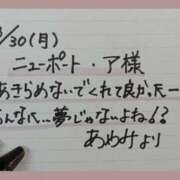 /30(月)
ニューポート・ア様
あきらめないでくれて良かったー
んなに…夢じゃないよね??
あゆみより